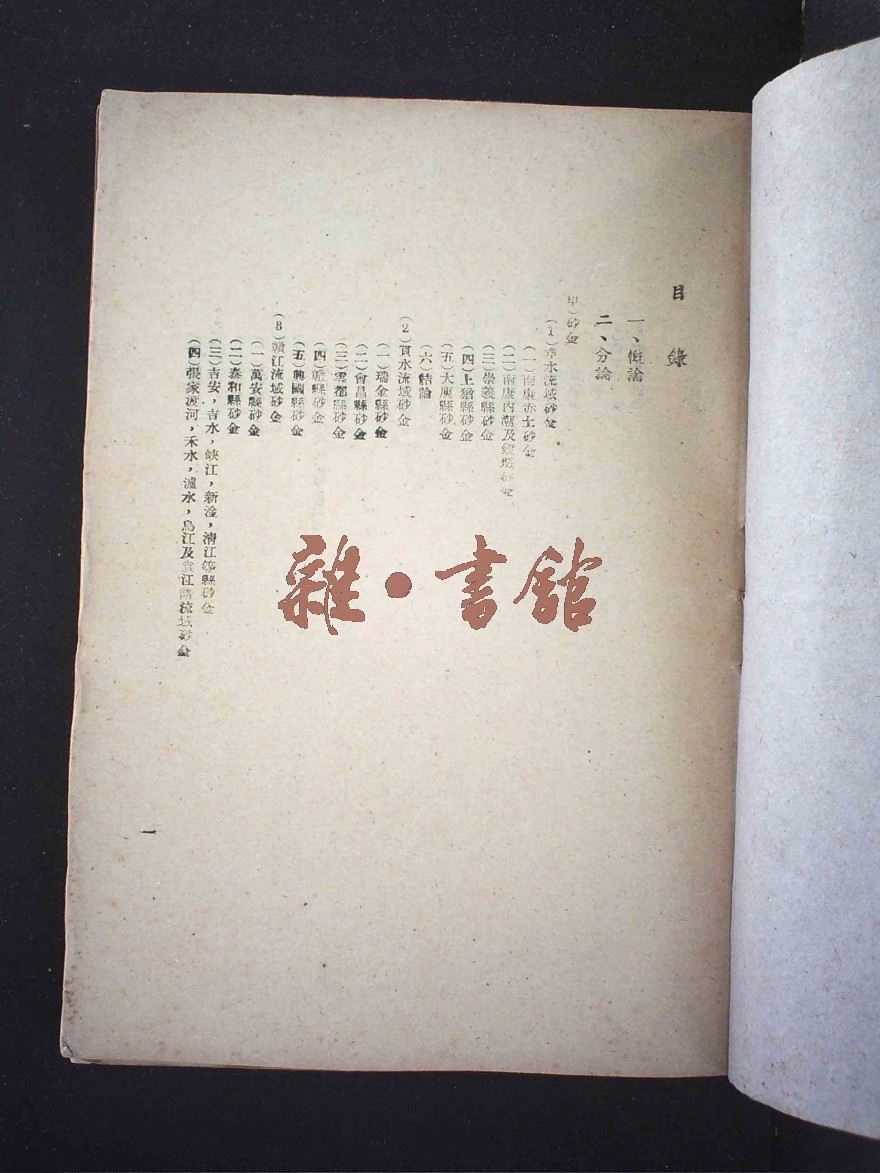 目錄
一、概論
二、分論
甲)砂金
(1)章水流域砂金
(一)南康赤土砂金
(二)南康內潮及鏡壩砂金
(三)崇義縣砂金
(四)上猶縣砂金
(五)大庾縣砂金
(六)結論
(2)貢水流域砂金
(一)瑞金縣砂金
(二)會昌縣砂金
(三)雩都縣砂金
(四)贛縣砂金
(五)興國縣砂金
(3)贛江流域砂金
(一)萬安縣砂金
(二)泰和縣砂金
(三)吉安,吉水,峽江,新淦,清江等縣砂金
(四)張家渡河,禾水,瀘水,烏江及袁江諸流域砂金
一
雜·書館